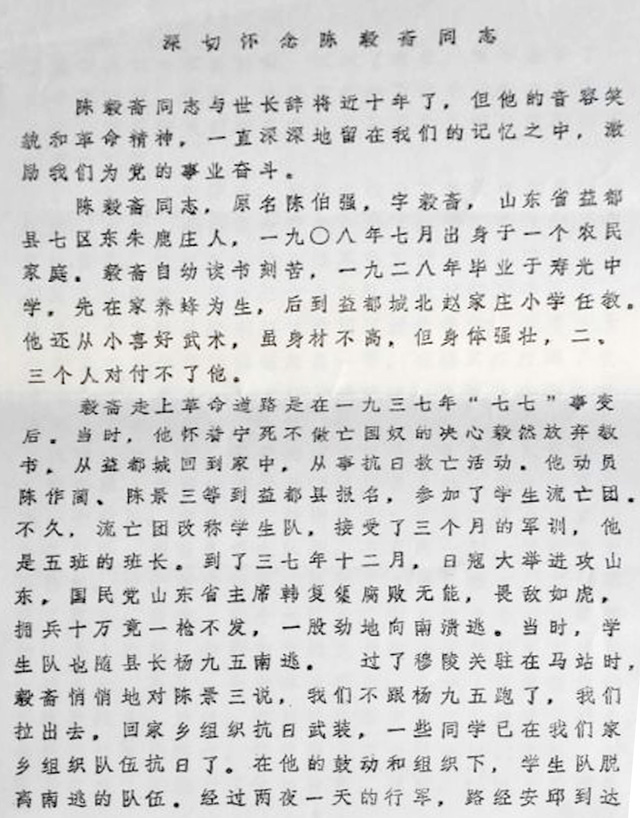 深切怀念陈毅斋同志
陈毅斋同志与世长辞将近十年了，但他的音容笑
貌和革命精神，一直深深地留在我们的记忆之中，激
励我们为党的事业奋斗。
陈毅斋同志，原名陈伯强，字毅斋，山东省益都
县七区东朱鹿庄人，一九〇八年七月出身于一个农民
家庭。毅斋自幼读书刻苦，一九二八年毕业于寿光中
学。先在家养蜂为生，后到益都城北赵家庄小学任教。
他还从小喜好武术，虽身材不高，但身体强壮，二、
三个人对付不了他。
毅斋走上革命道路是在一九三七年“七七”事变
后。当时，他怀着宁死不做亡国奴的决心毅然放弃教
书，从益都城回到家中，从事抗日救亡活动。他动员
陈作蔺、陈景三等到益都县报名，参加了学生流亡团。
不久，流亡团改称学生队，接受了三个月的军训，他
是五班的班长。到了三七年十二月，日寇大举进攻山
东，国民党山东省主席韩复榘腐败无能，畏敌如虎，
拥兵十万竟一枪不发，一股劲地向南溃逃。当时，学
生队也随县长杨九五南逃。 过了穆陵关驻在马站时，
毅斋悄悄地对陈景三说，我们不跟杨九五跑了，我们
拉出去，回家乡组织抗日武装，一些同学已在我们家
乡组织队伍抗日了。在他的鼓动和组织下，学生队脱
离南逃的队伍。经过两夜一天的行军，路经安邱到达